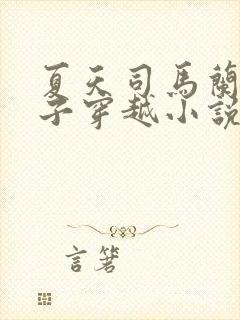 夏天司馬蘭
子穿越小說
言箸